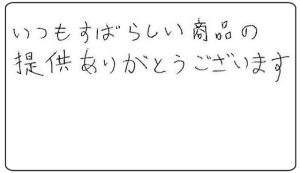 いつもすばらしい商品の
提供ありがとうございます